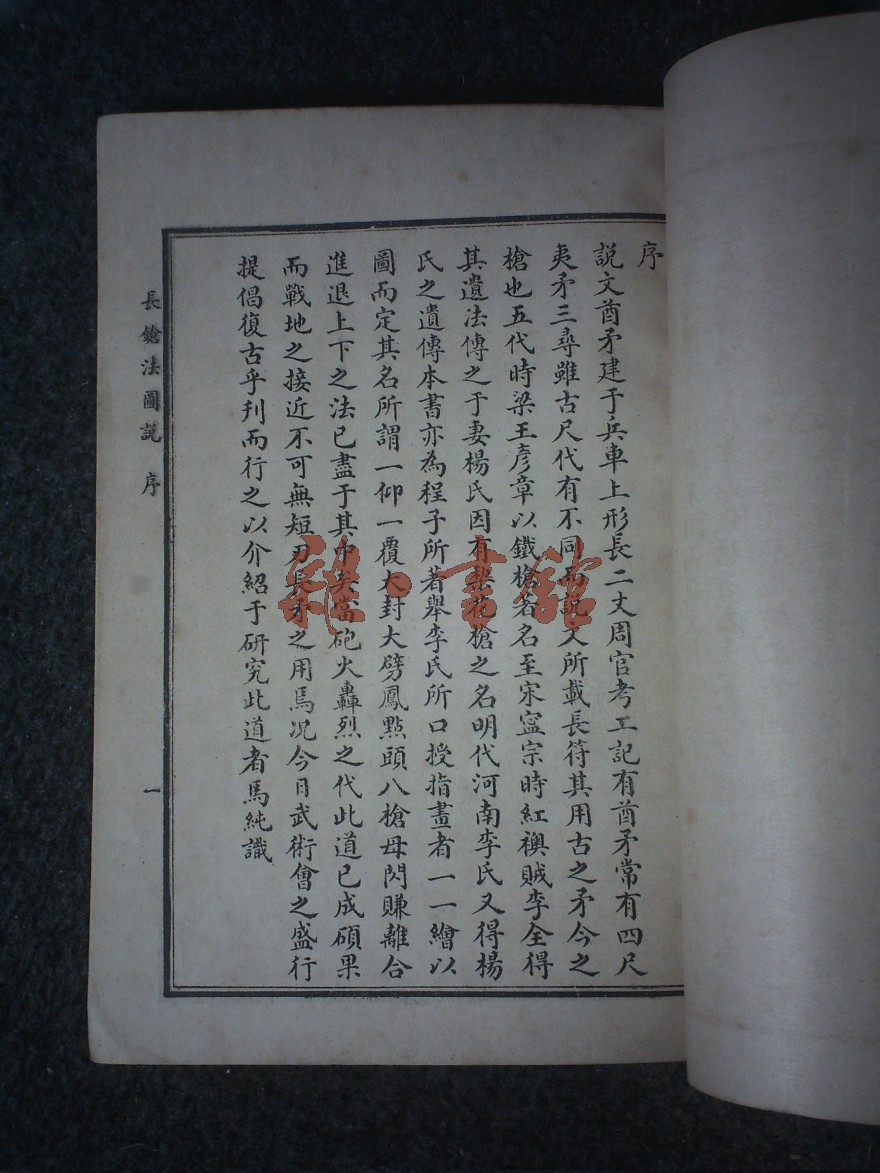 序
説文酋矛建于兵車上形長二丈周官考工記有酋矛常有四尺
夷矛三尋雖古尺代有不同而説文所載長符其用古之矛今之
槍也五代時梁王彥章以鐵槍著名至宋寍宗時紅襖賊李全得
其遺法傳之于妻楊氏因有棃花槍之名明代河南李氏又得楊
氏之遺傳本書亦為程子所著舉李氏所口授指畫者一一繪以
圖而定其名所謂一仰一覆大封大劈鳳點頭八槍母閃賺離合
進退上下之法已盡于其中矣當砲火轟烈之代此道已成碩果
而戰地之接近不可無短刃長矛之用焉况今日武術會之盛行
提倡復古乎刋而行之以介紹于研究此道者馬純識
長鎗法圖説 序
一
雜·書館